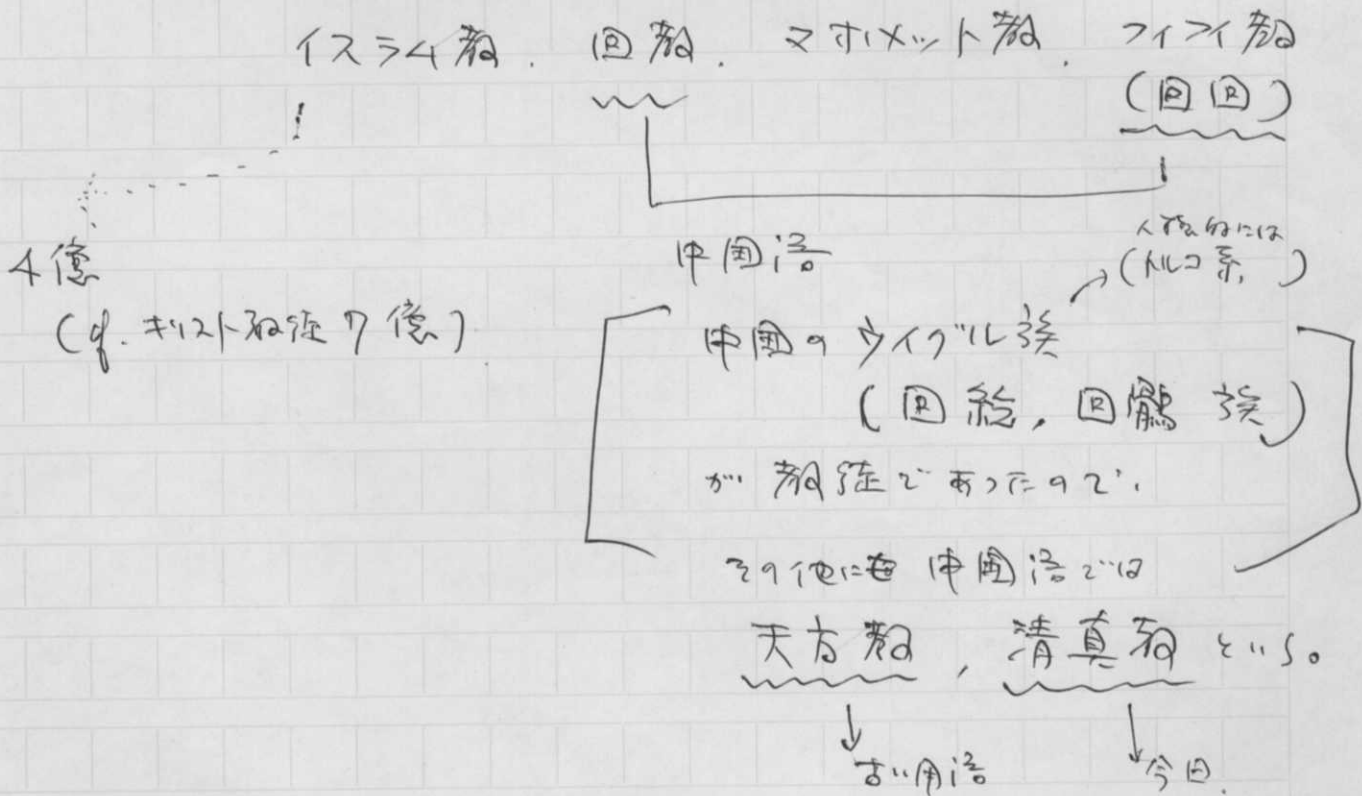 イスラム教. 回教. マホメット教. フイフイ教
(回回)
4億
(cf. キリスト教徒 7億)
中国語
人種的には
(トルコ系)
中国のウイグル族
(回紇, 回鶻 族)
が 教徒であったので.
その他にも 中国語では
天方教, 清真教 という。
古い用語
今日.